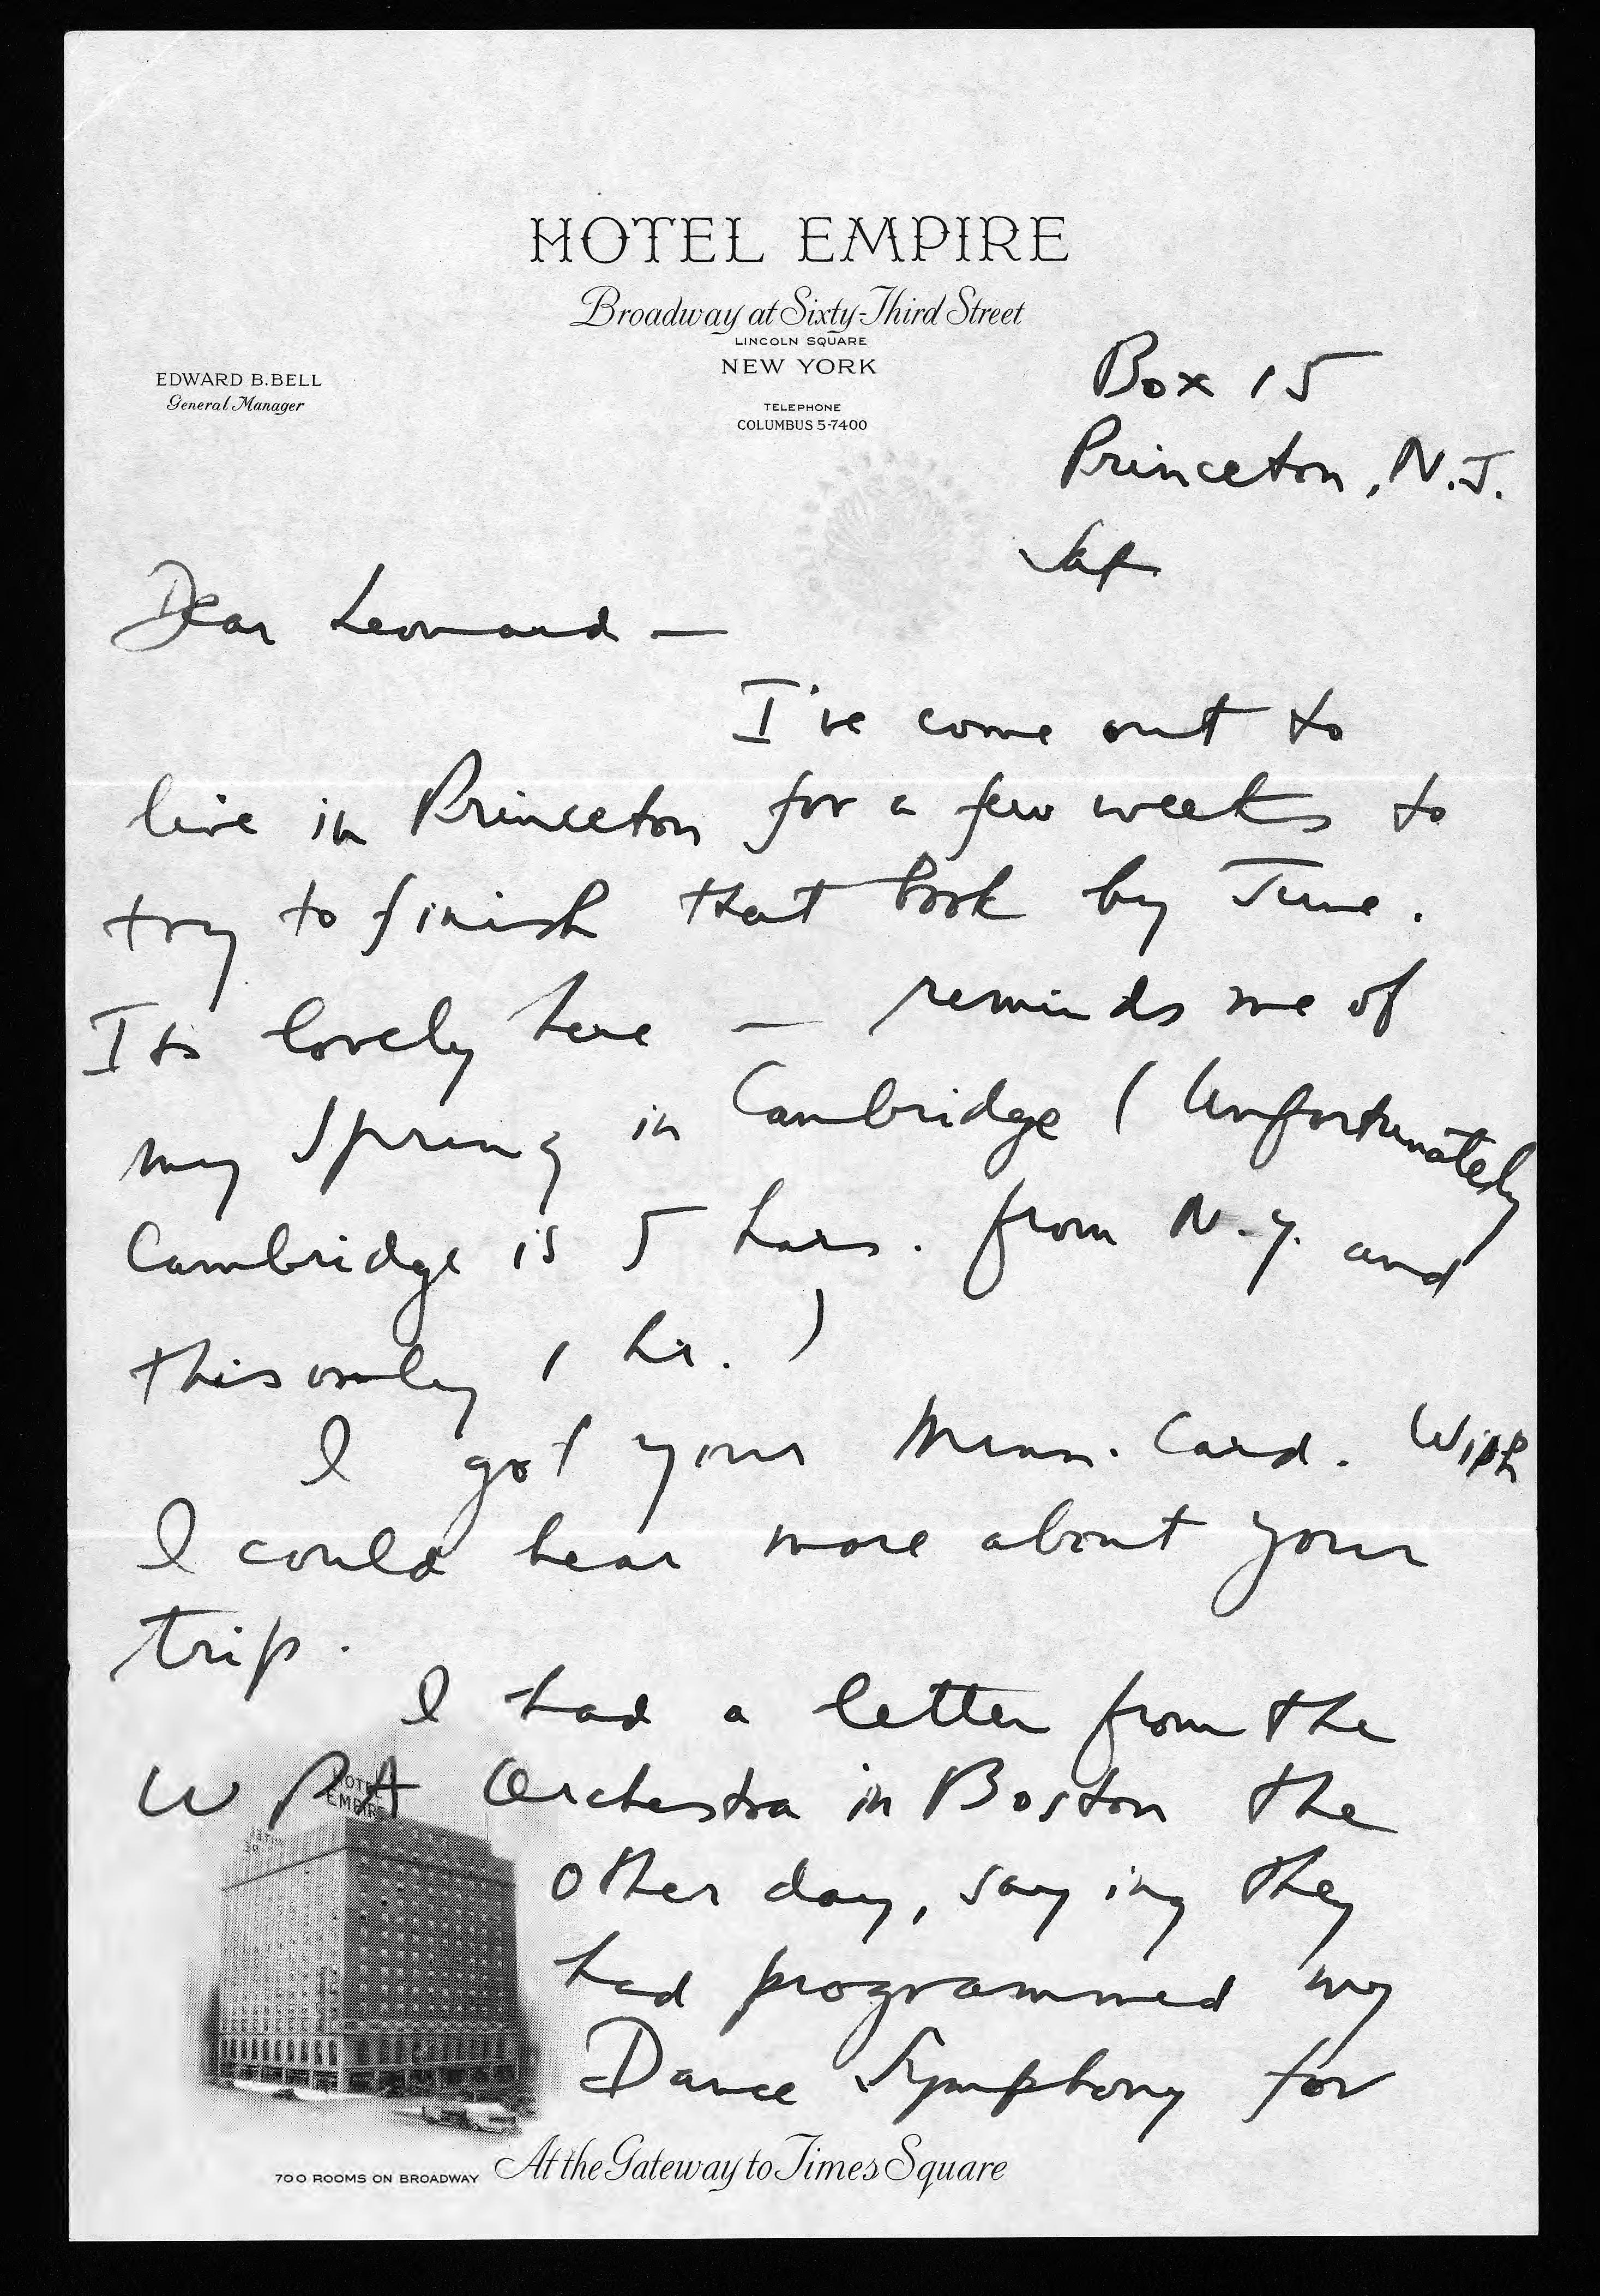 HOTEL EMPIRE
Broadway at Sixty-Third Street
LINCOLN SQUARE
NEW YORK
EDWARD B. BELL
General Manager
TELEPHONE
COLUMBUS 5-7400
Box 15
Princeton, N.J.
Sat
Dear Leonard —
I've come out to
live in Princeton for a few weeks to
try to finish that book by June.
Its lovely here — reminds me of
my Spring in Cambridge (Unfortunately
Cambridge is 5 hrs. from N.Y. and
this only 1 hr.)
I got your Card. Wish
I could hear more about your
trip.
I had a letter from the
WPA Orchestra in Boston the
other day, saying they
had programmed my
Dance Symphony for
HOTEL
EMPIRE
700 ROOMS ON BROADWAY
At the Gateway to Times Square